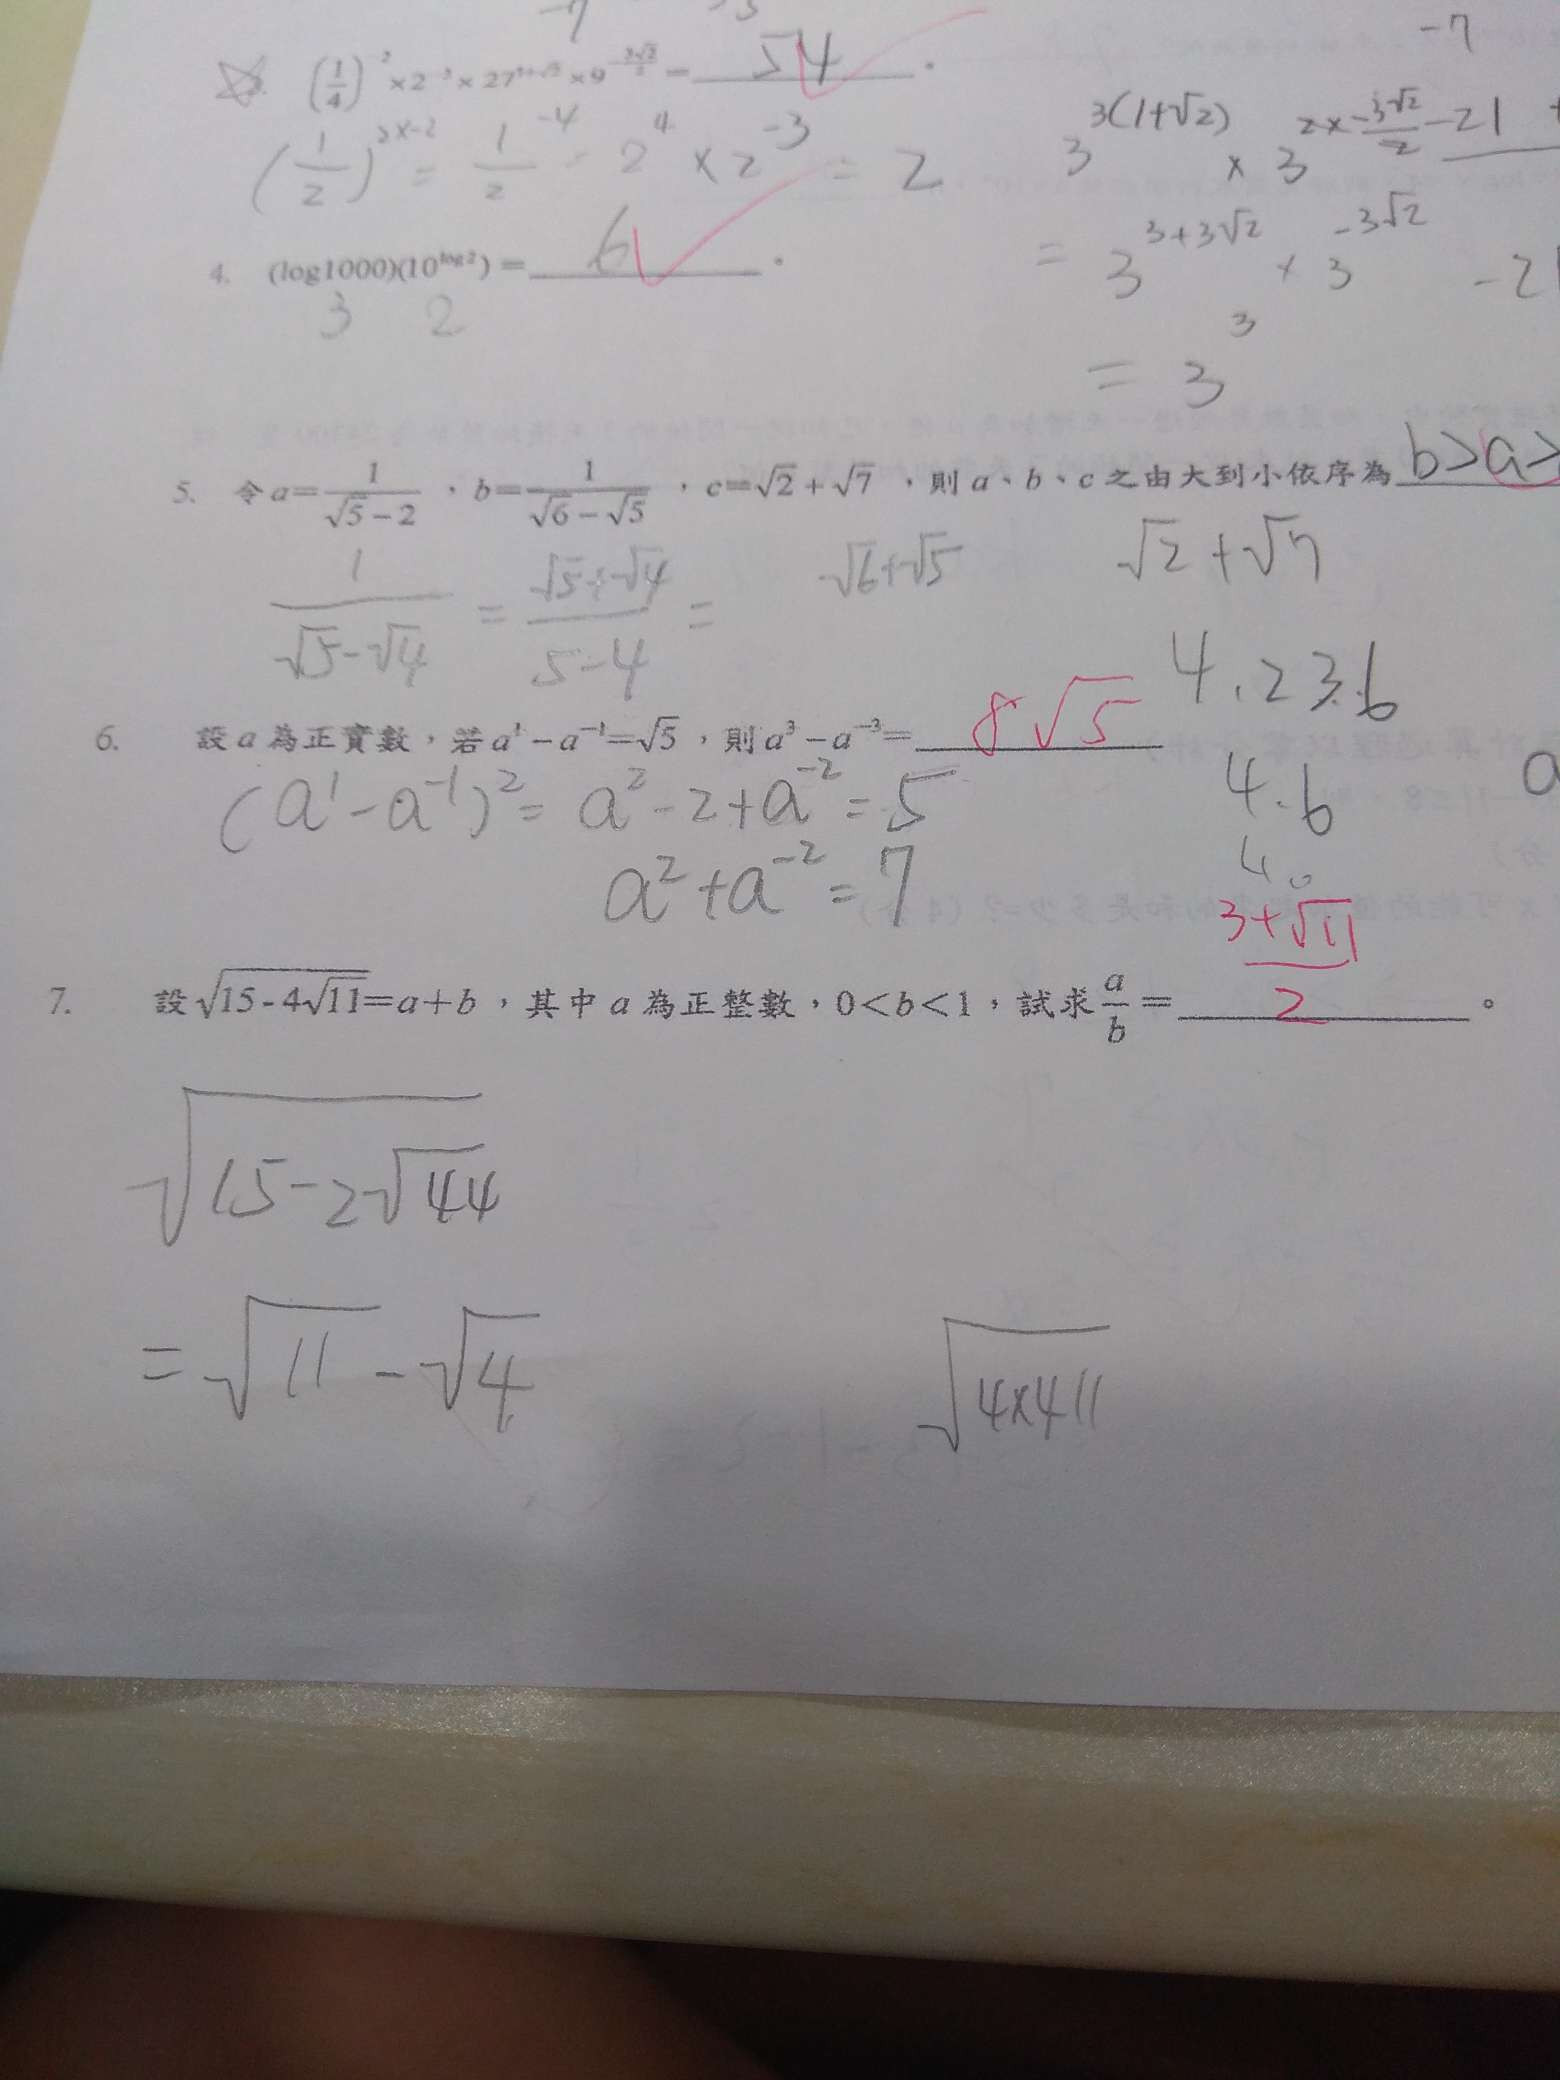 -7
(1/4)⁻² × 2⁻³ × 27^(1+√2) × 9^(-3√2/2) = 54 。
(1/2)^(2×-2) = 1/2 ^-4 = 2⁴ × 2⁻³ = 2
3^(3(1+√2)) × 3^(2×-3√2/2) -21
= 3^(3+3√2) × 3^(-3√2) -21
= 3³
4. (log1000)(10^(log2)) = 6 。
3 2
5. 令 a=1/(√5-2) ，b=1/(√6-√5) ，c=√2+√7 ，則 a、b、c 之由大到小依序為 b>a>
1/(√5-√4) = (√5+√4)/(5-4) = √6+√5 √2+√7
4.236
6. 設 a 為正實數，若 a¹-a⁻¹=√5 ，則 a³-a⁻³= 8√5
(a¹-a⁻¹)² = a²-2+a⁻² = 5
4.6
a²+a⁻² = 7
7. 設 √(15-4√11)=a+b ，其中 a 為正整數，0<b<1，試求 a/b = (3+√11)/2 。
√(15-2√44)
= √11 - √4
√(4×411)